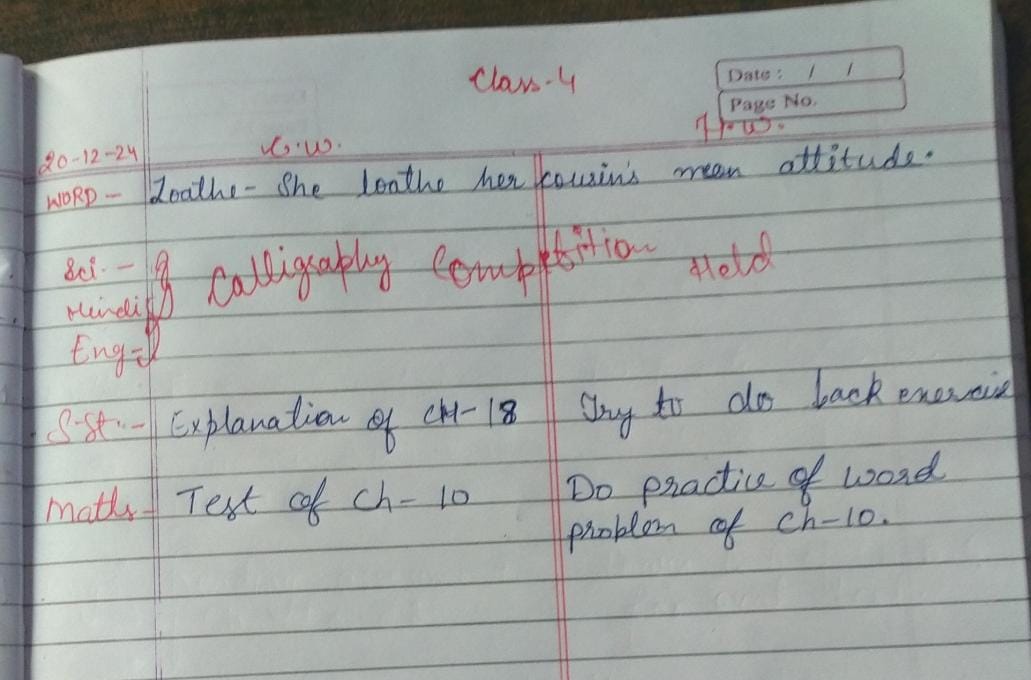 Class-4
Date: / /
Page No.
20-12-24 C.W. H.W.
WORD - Loathe - She loathe her cousin's mean attitude.
Sci. -
Hindi
Calligraphy Competition Held
Eng-
S-St.- Explanation of CH-18 Try to do back exercise
Maths- Test of Ch-10 Do practice of word
problem of Ch-10.